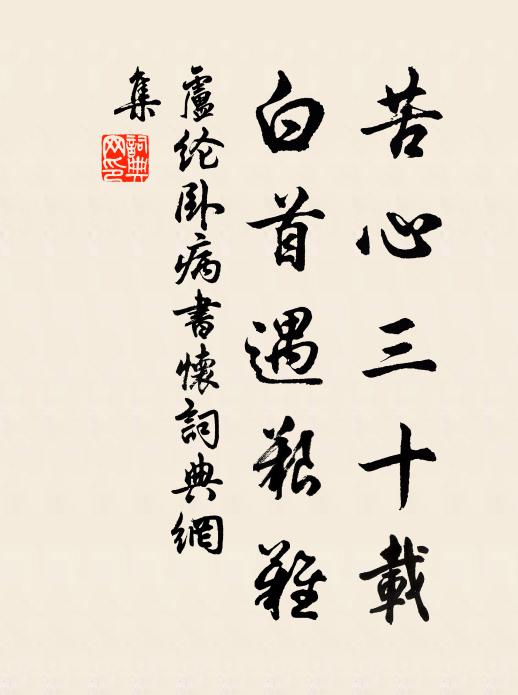 苦心三十載
白首遇艱難
盧纶卧病書懷詞典網
集
詞典網印